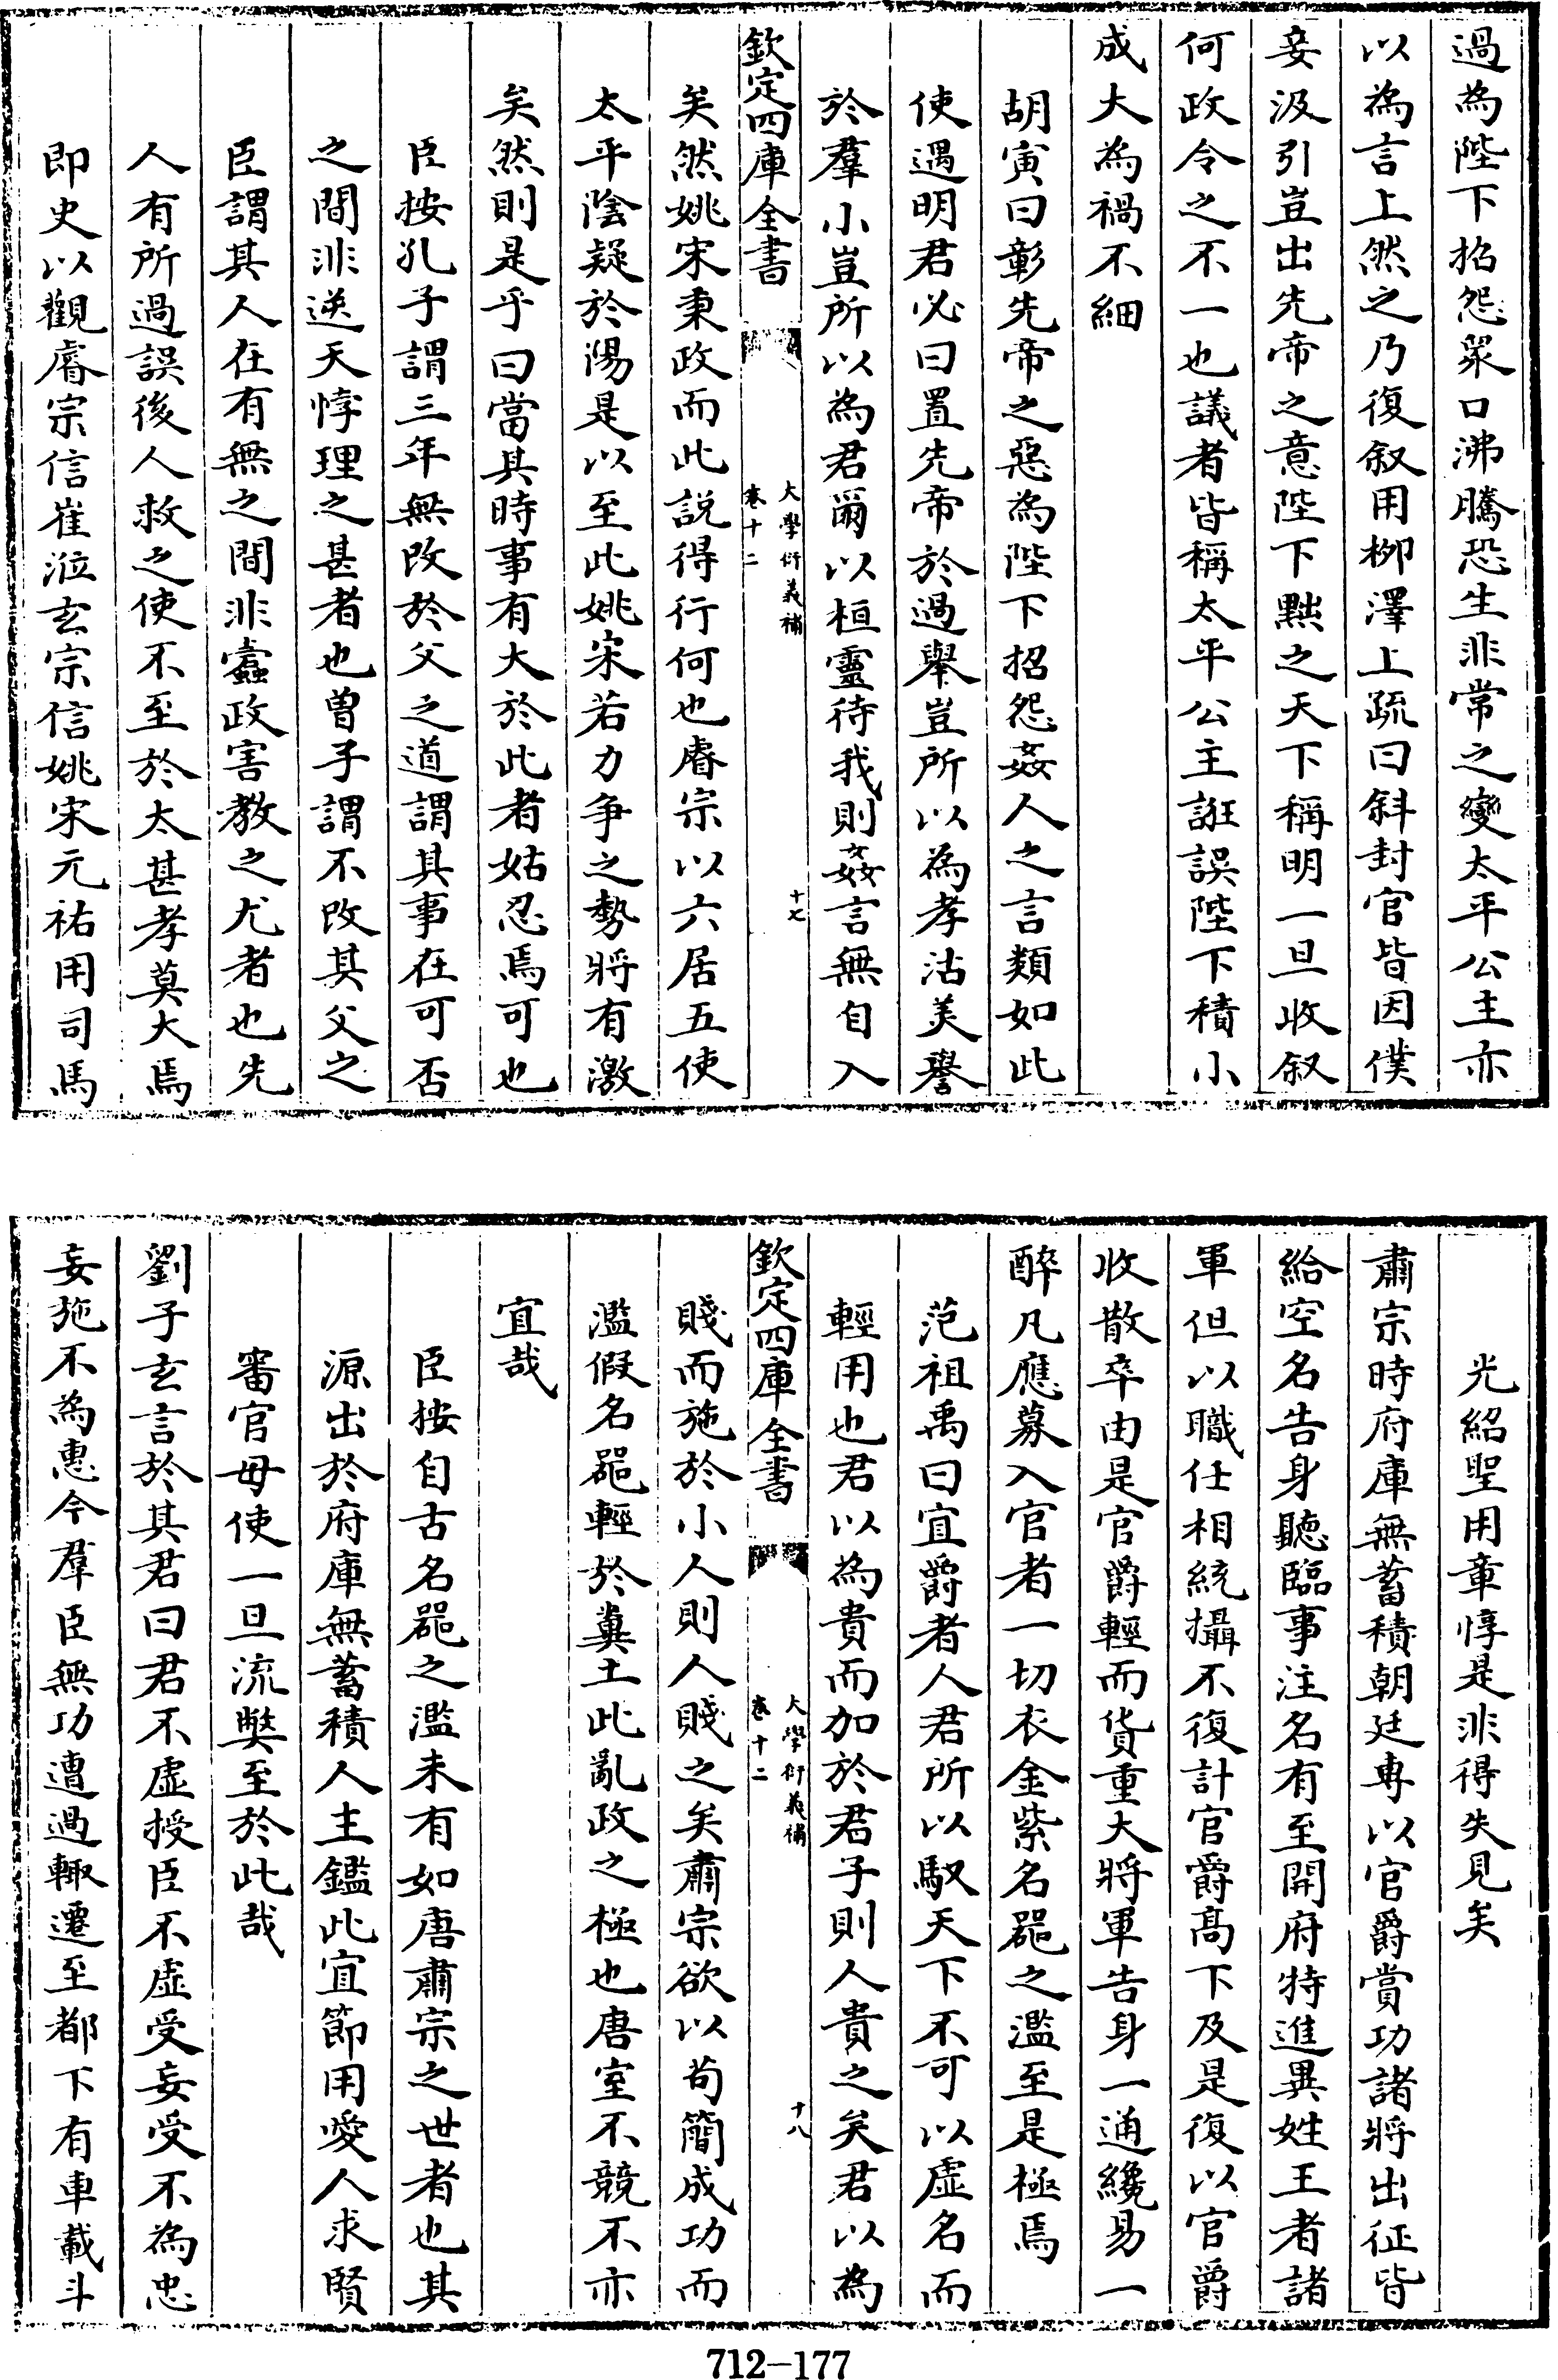 過為陛下招怨衆口沸騰恐生非常之變太平公主亦
以為言上然之乃復叙用栁澤上疏曰斜封官皆因僕
妾汲引豈出先帝之意陛下黜之天下稱明一旦收叙
何政令之不一也議者皆稱太平公主誑誤陛下積小
成大為禍不細
胡寅曰彰先帝之惡為陛下招怨姦人之言類如此
使遇明君必曰置先帝於過舉豈所以為孝沽美譽
於羣小豈所以為君爾以桓靈待我則姦言無自入
欽定四庫全書
大學衍義補
卷十二
十七
矣然姚宋秉政而此説得行何也睿宗以六居五使
太平陰疑於湯是以至此姚宋若力争之勢將有激
矣然則是乎曰當其時事有大於此者姑忍焉可也
臣按孔子謂三年無改於父之道謂其事在可否
之間非逆天悖理之甚者也曽子謂不改其父之
臣謂其人在有無之間非蠹政害教之尤者也先
人有所過誤後人救之使不至於太甚孝莫大焉
即史以觀睿宗信崔涖玄宗信姚宋元祐用司馬
光紹聖用章惇是非得失見矣
肅宗時府庫無蓄積朝廷專以官爵賞功諸將出征皆
給空名告身聽臨事注名有至開府特進異姓王者諸
軍但以職任相統攝不復計官爵髙下及是復以官爵
收散卒由是官爵輕而貨重大將軍告身一通纔易一
醉凡應募入官者一切衣金紫名噐之濫至是極焉
范祖禹曰官爵者人君所以馭天下不可以虚名而
輕用也君以為貴而加於君子則人貴之矣君以為
欽定四庫全書
大學衍義補
卷十二
十八
賤而施於小人則人賤之矣肅宗欲以苟簡成功而
濫假名噐輕於糞土此亂政之極也唐室不競不亦
宜哉
臣按自古名噐之濫未有如唐肅宗之世者也其
源出於府庫無蓄積人主鑑此宜節用愛人求賢
審官毋使一旦流獘至於此哉
劉子玄言於其君曰君不虚授臣不虚受妄受不為忠
妄施不為惠今羣臣無功遭遇輙遷至都下有車載斗
712-177